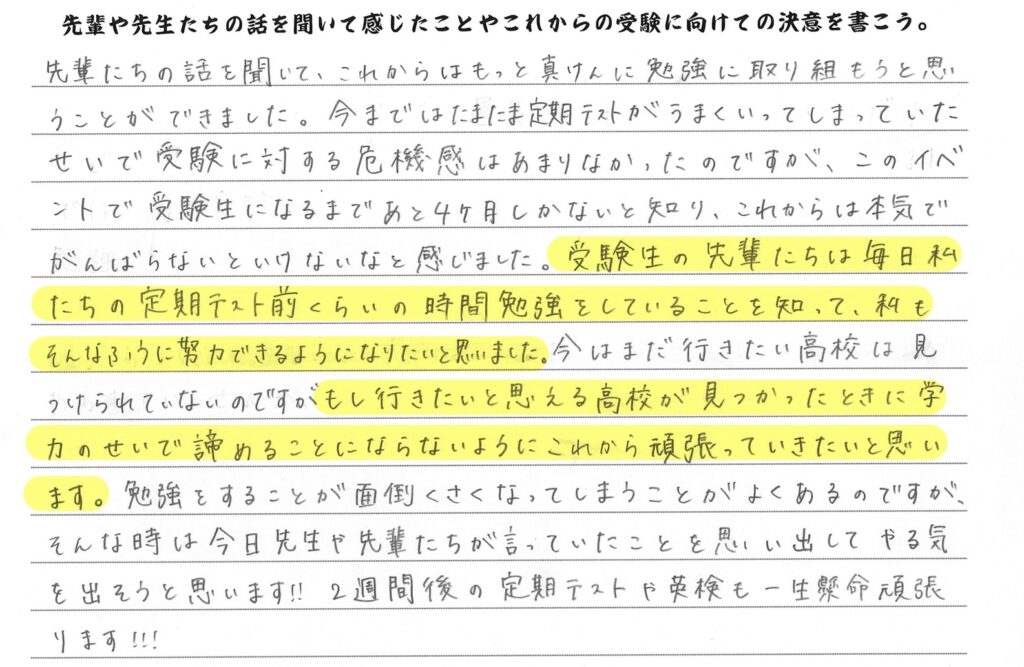 先輩や先生たちの話を聞いて感じたことやこれからの受験に向けての決意を書こう。
先輩たちの話を聞いて、これからはもっと真けんに勉強に取り組もうと思
うことができました。今まではたまたま定期テストがうまくいってしまっていた
せいで受験に対する危機感はあまりなかったのですが、このイベ
ントで受験生になるまであと4ケ月しかないと知り、これからは本気で
がんばらないといけないなと感じました。受験生の先輩たちは毎日私
たちの定期テスト前くらいの時間勉強をしていることを知って、私も
そんなふうに努力できるようになりたいと思いました。今はまだ行きたい高校は見
つけられていないのですがもし行きたいと思える高校が見つかったときに学
力のせいで諦めることにならないようにこれから頑張っていきたいと思い
ます。勉強をすることが面倒くさくなってしまうことがよくあるのですが、
そんな時は今日先生や先輩たちが言っていたことを思い出してやる気
を出そうと思います!! 2週間後の定期テストや英検も一生懸命頑張
ります!!!